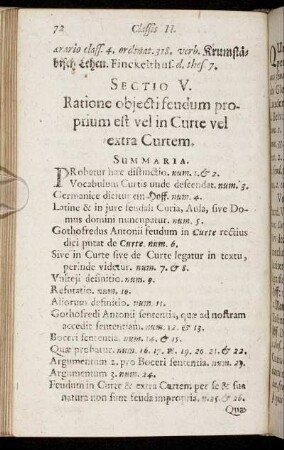 72 Classis II.
arario class. 4. ordinat. 318. verb. Krumstä-
bisch Lehen. Finckelthus. d. thes. 7.
SECTIO V.
Ratione objecti feudum pro-
prium est vel in Curte vel
extra Curtem.
SUMMARIA.
PRobatur hæc distinctio. num. 1. & 2.
Vocabulum Curtis unde descendat. num. 3.
Germanice dicitur ein Hoff. num. 4.
Latine & in jure feudali Curia, Aula, sive Do-
mus domini nuncupatur. num. 5.
Gothofredus Antonii feudum in Curte rectius
dici putat de Curte. num. 6.
Sive in Curte sive de Curte legatur in textu,
perinde videtur. num. 7. & 8.
Vulteji definitio. num. 9.
Refutatio. num. 10.
Aliorum definitio. num. 11.
Gothofredi Antonii sententia, quæ ad nostram
accedit sententiam. num. 12. & 13.
Boceri sententia. num. 14. & 15.
Quæ probatur. num. 16. 17. 19. 20. 21. & 22.
Argumentum 2. pro Boceri sententia. num. 23.
Argumentum 3. num. 24.
Feudum in Curte & extra Curtem per se & sua
natura non sunt feuda impropria. n. 25. & 26.
Quæ